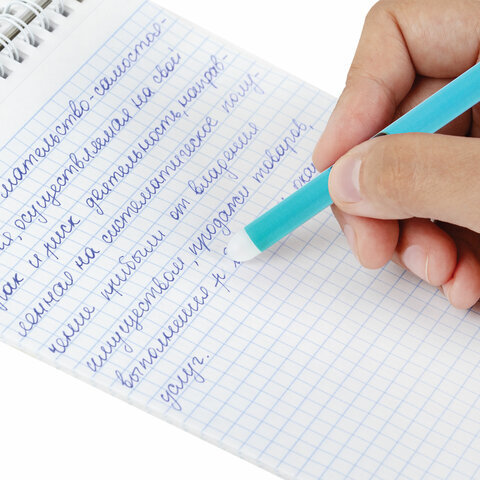 мательство-самостоя-
я, осуществляемая на свой
рак и риск деятельность, направ-
ленная на систематическое полу-
чение прибыли от владения
имуществом, продажи товаров,
выполнения р
услуг.